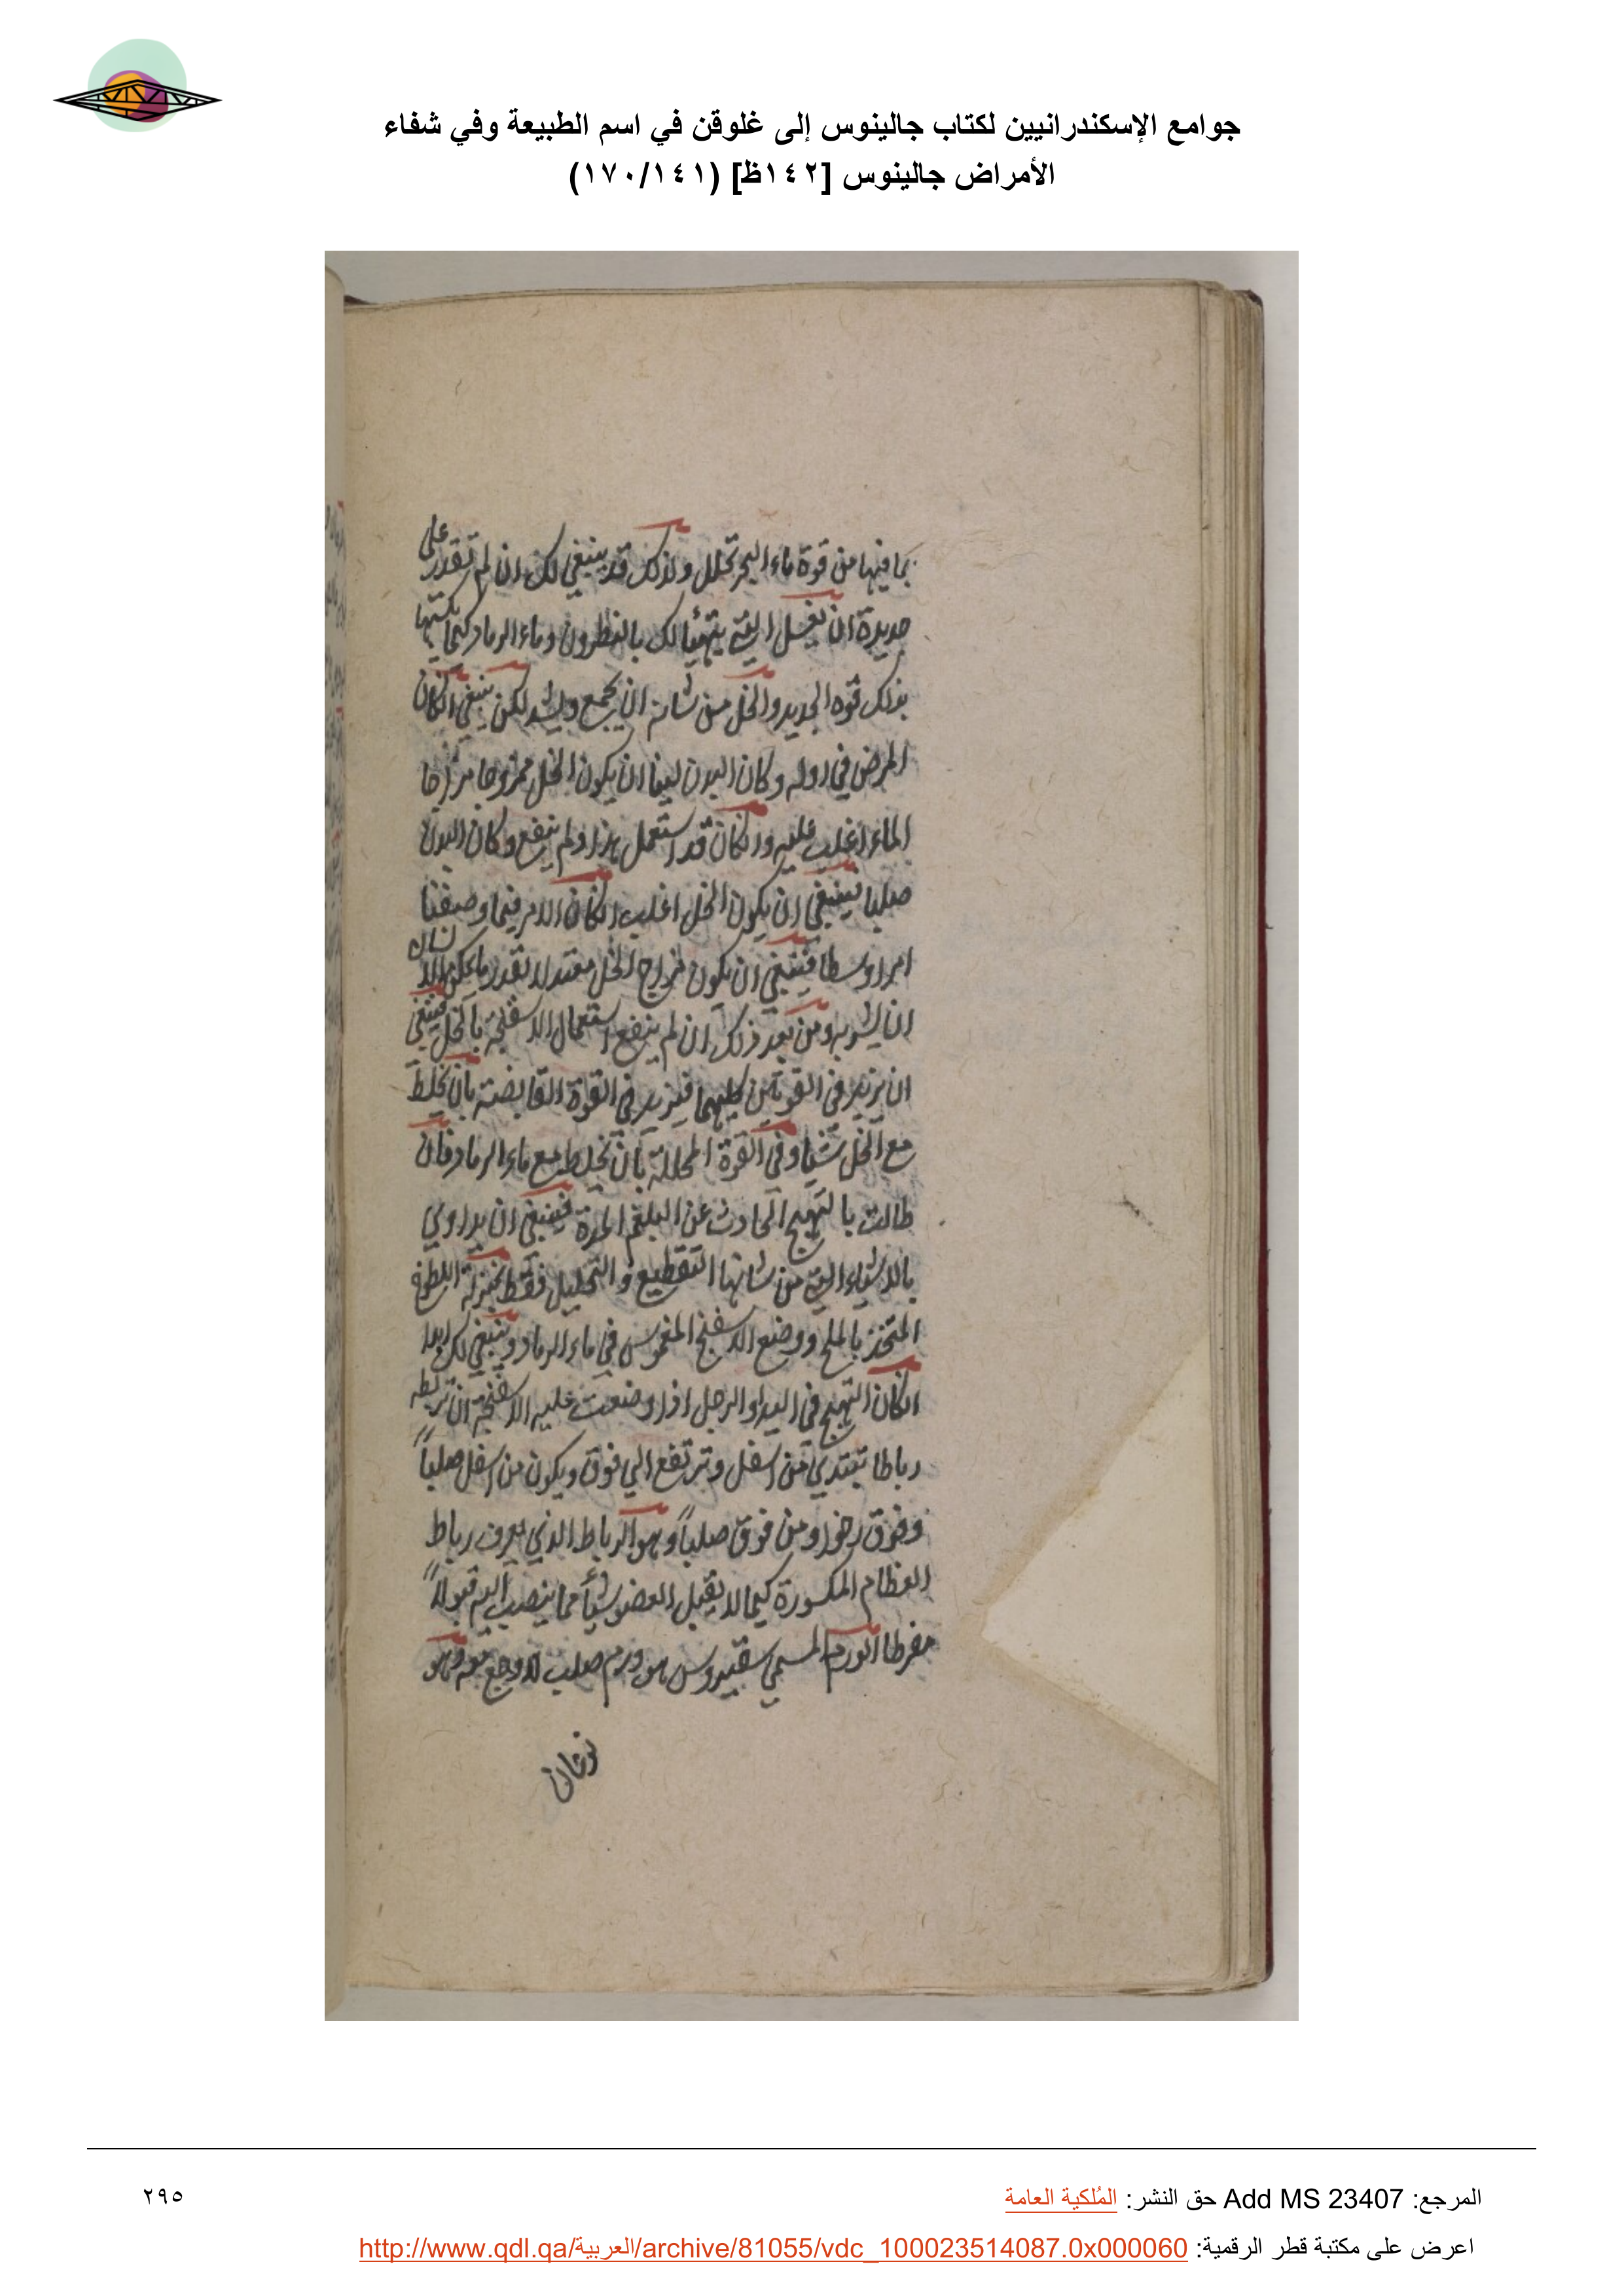 جوامع الإسكندرانيين لكتاب جالينوس إلى غلوقن في اسم الطبيعة وفي شفاء
الأمراض جالينوس [١٤٢ظ] (١٧٠/١٤١)
بما فيها من قوة ماء البحر تحلل ولذلك قد ينبغي لك ان لم تقدر على
جديدة ان تغسل التي يتهيأ لك بالنطرون وماء الرماد كيما يكسبها
بذلك قوه الجديد والخل من شانه ان يجمع ويشد لكن ينبغي انكان
المرض في اوله وكان البدن لينا ان يكون الخل ممزوجا مزاجا
الماء اغلب عليه وانكان قد استعمل هذا ولم ينفع وكان البدن
صلبا فينبغي ان يكون الخل اغلب انكان الامر فيما وصفنا
امرا وسطا فينبغي ان يكون مزاج الخل معتدلا بقدر ما يمكن الانسان
ان يشربه ومن بعد ذلك ان لم ينفع استعمال الاسفنجة بالخل فينبغي
ان تزيد في القوتين كليهما فيزيد في القوة القابضة بان تخلط
مع الخل شيئا وفي القوة المحللة بان تخلط مع ماء الرماد فان
طالت بالتهيج الحادث عن البلغم المدة فينبغي ان يداوي
بالاشياء التي من شانها التقطيع والتحليل فقط بمنزلة اللطوخ
المتخذ بالملح ووضع الاسفنج المغموس في ماء الرماد وينبغي لك ابدا
انكان التهيج في اليد او الرجل اذا وضعت عليه الاسفنجة ان تربطه
رباطا تبتدي من اسفل وترتفع الي فوق ويكون من اسفل صلباً
وفوق رخوا ومن فوق صلباً وهو الرباط الذي يعرف رباط
العظام المكسورة كيما لا يقبل العضو شيأ مما ينصب اليه قبولاً
مفرطا الورم المسمي سقيروس هو ورم صلب لا وجع معه وهو
نوعان
المرجع: Add MS 23407 حق النشر: المُلكية العامة
٢٩٥
اعرض على مكتبة قطر الرقمية: http://www.qdl.qa/العربية/archive/81055/vdc_100023514087.0x000060